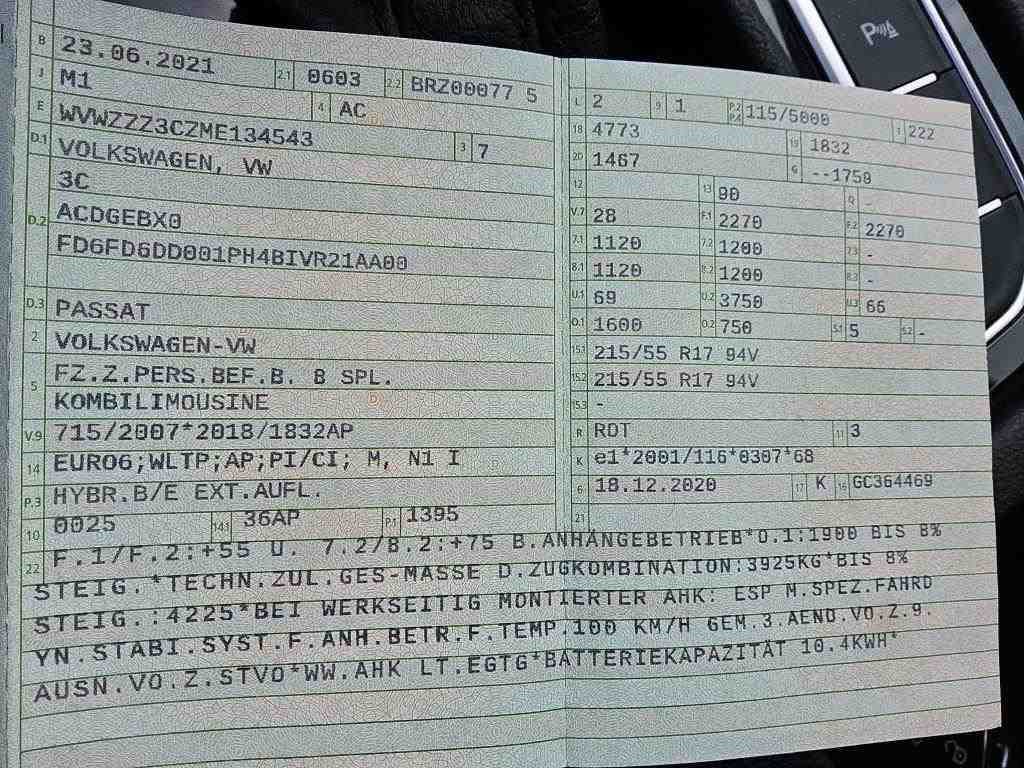 B 23.06.2021 2.1 0603 2.2 BRZ00077 5
J M1 4 AC
E WVWZZZ3CZME134543 3 7
D.1 VOLKSWAGEN, VW
3C
D.2 ACDGEBX0
FD6FD6DD001PH4BIVR21AA00
D.3 PASSAT
2 VOLKSWAGEN-VW
5 FZ.Z.PERS.BEF.B. 8 SPL.
KOMBILIMOUSINE
V.9 715/2007*2018/1832AP
14 EURO6;WLTP;AP;PI/CI; M, N1 I
P.3 HYBR.B/E EXT.AUFL.
10 0025 14.1 36AP P.1 1395
L 2 9 1 P.2 P.4 115/5000 T 222
18 4773 19 1832
20 1467 G --1759
12 13 90 Q -
V.7 28 F.1 2270 F.2 2270
7.1 1120 7.2 1200 7.3 -
8.1 1120 8.2 1200 8.3 -
U.1 69 U.2 3750 U.3 66
O.1 1600 O.2 750 S.1 5 S.2 -
15.1 215/55 R17 94V
15.2 215/55 R17 94V
15.3 -
R ROT 11 3
K e1*2001/116*0307*68
6 18.12.2020 17 K 16 GC364469
21
22 F.1/F.2:+55 U. 7.2/8.2:+75 B.ANHÄNGEBETRIEB*O.1:1900 BIS 8%
STEIG. *TECHN.ZUL.GES-MASSE D.ZUGKOMBINATION:3925KG*BIS 8%
STEIG.:4225*BEI WERKSEITIG MONTIERTER AHK: ESP M.SPEZ.FAHRD
YN.STABI.SYST.F.ANH.BETR.F.TEMP.100 KM/H GEM.3.AEND.VO.Z.9.
AUSN.VO.Z.STVO*WW.AHK LT.EGTG*BATTERIEKAPAZITÄT 10.4KWH*